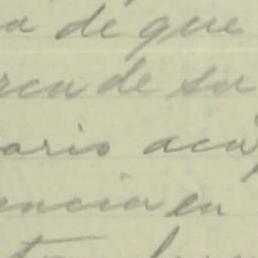 a de que
rca de su
ario acu
encia en